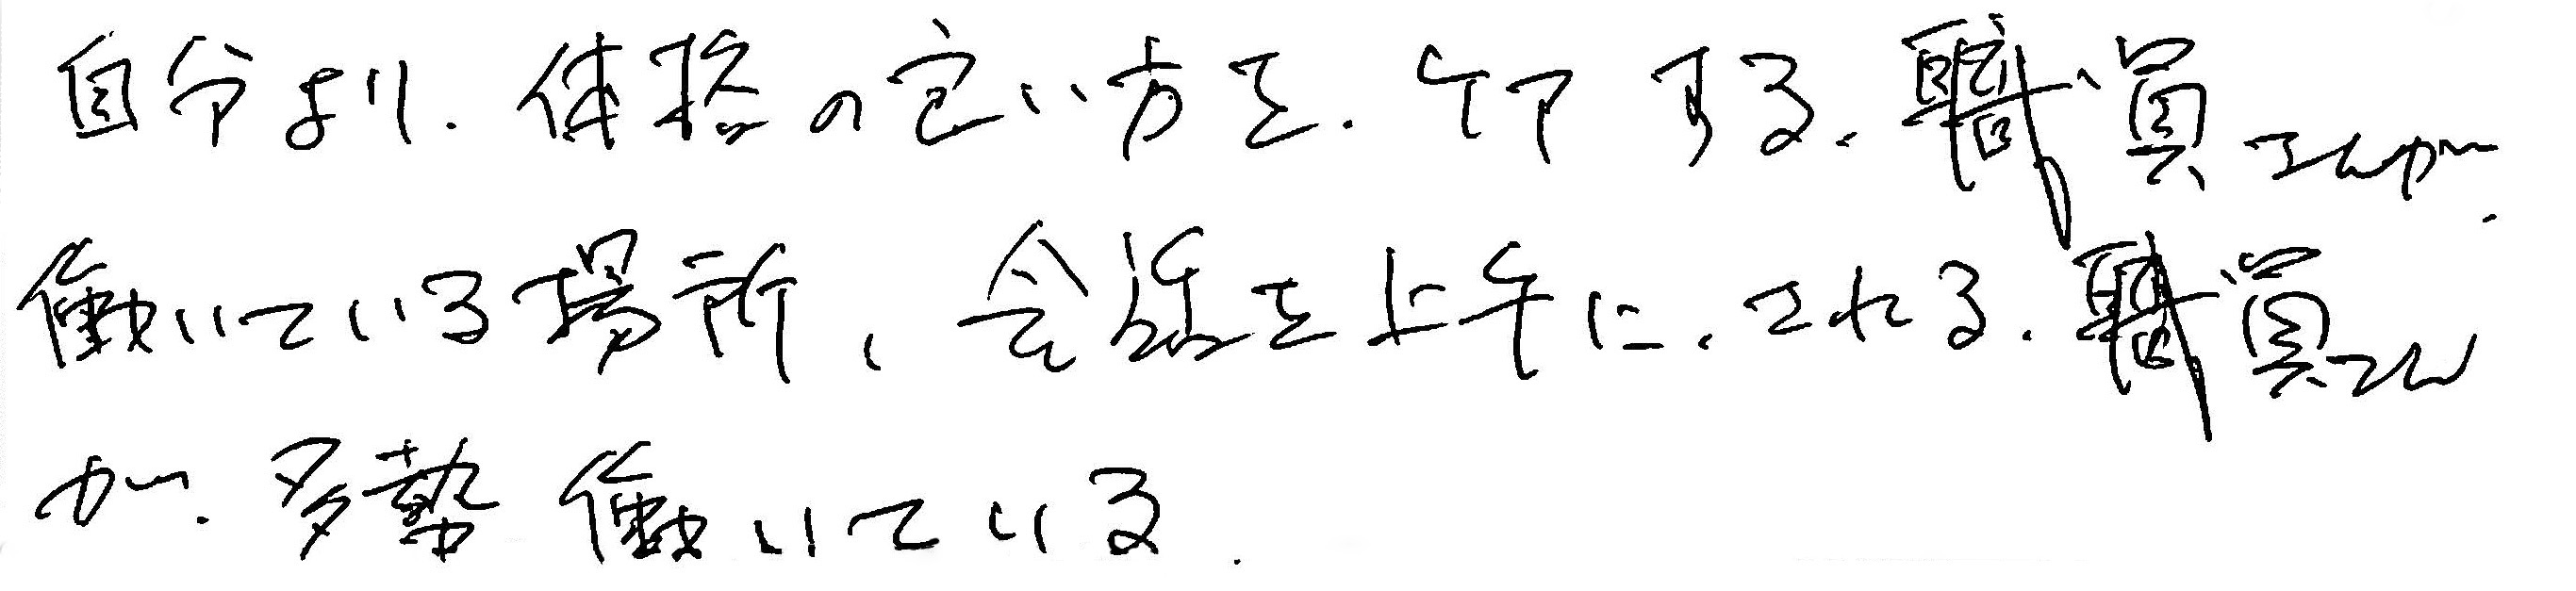 自分より、体格の良い方を、ケアする、職員さんが、
働いている場所、会話を上手に、される、職員さん
が、多勢働いている.